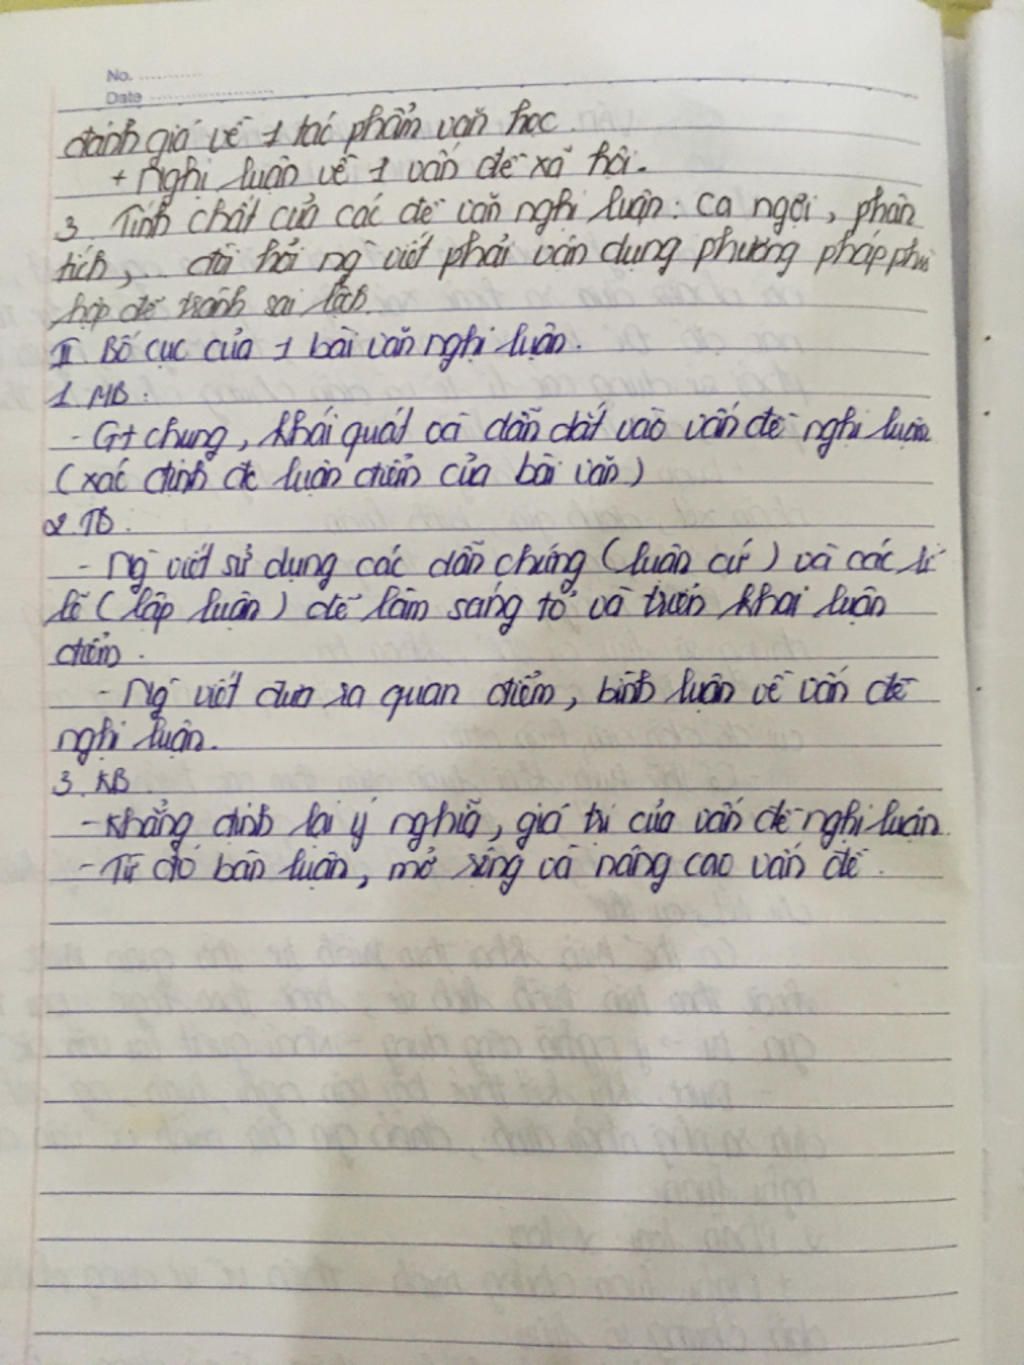 No.
Date
đánh giá về 1 tác phẩm văn học.
+ Nghị luận về 1 vấn đề xã hội.
3. Tính chất của các đề văn nghị luận: ca ngợi, phân
tích,... đòi hỏi ng viết phải vận dụng phương pháp phù
hợp để tránh sai lệch.
II. Bố cục của 1 bài văn nghị luận.
1. MB:
- Gt chung, khái quát và dẫn dắt vào vấn đề nghị luận
(xác định đc luận điểm của bài văn)
2. TB.
- Ng viết sử dụng các dẫn chứng (luận cứ) và các lí
lẽ (lập luận) để làm sáng tỏ và triển khai luận
điểm.
- Ng viết đưa ra quan điểm, bình luận về vấn đề
nghị luận.
3. KB
- Khẳng định lại ý nghĩa, giá trị của vấn đề nghị luận.
- Từ đó bàn luận, mở rộng và nâng cao vấn đề.